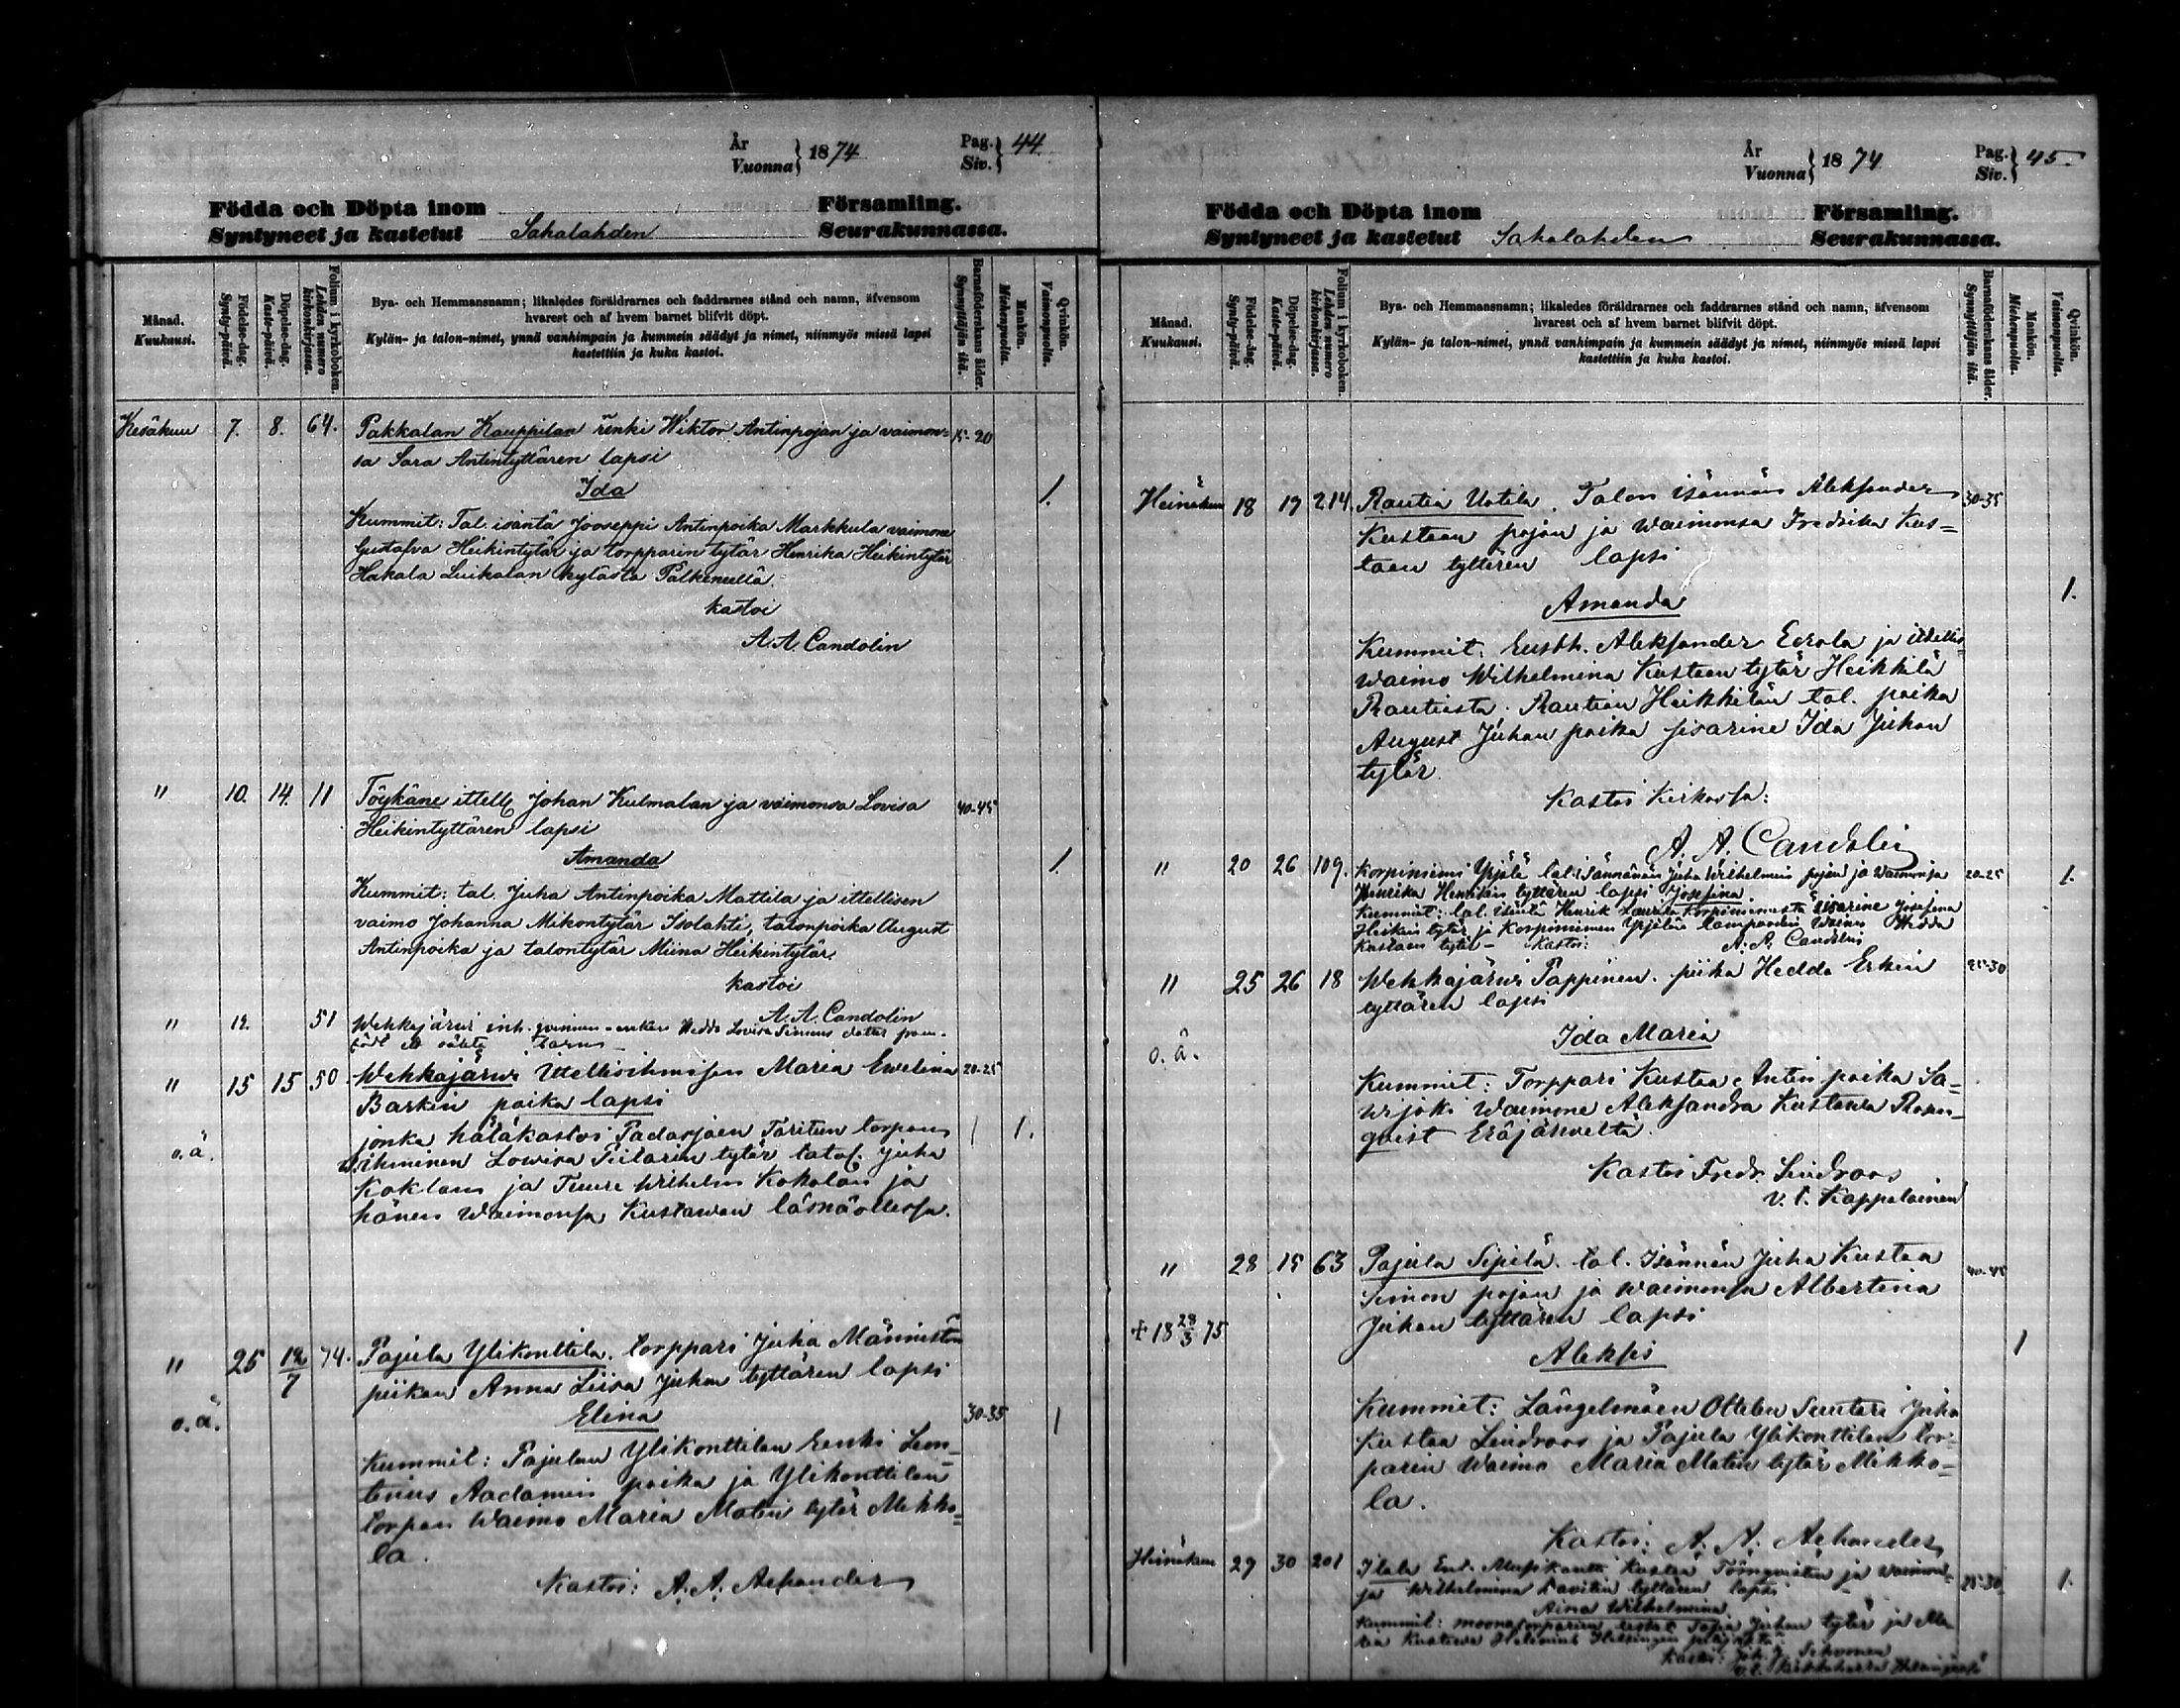 År
Vuonna } 1874
Pag.
Siv. } 44
Födda och Döpta inom Församling.
Syntyneet ja kastetut Sahalahden Seurakunnassa.
Månad.
Kuukausi.
Födelse-dag.
Synty-päivä.
Döpelse-dag.
Kaste-päivä.
Folium i kyrkoboken.
Lehden numero
kirkonkirjassa.
Bya- och Hemmansnamn; likaledes föräldrarnes och faddrarnes stånd och namn, äfvensom
hvarest och af hvem barnet blifvit döpt.
Kylän- ja talon-nimet, ynnä vanhimpain ja kummein säädyt ja nimet, niinmyös missä lapsi
kastettiin ja kuka kastoi.
Barnaföderskans ålder.
Synnyttäjän ikä.
Mankön.
Miehenpuolta.
Qvinkön.
Vaimonpuolta.
Kesäkuu 7. 8. 64. Pakkalan Kauppilan renki Wiktor Antinpojan ja vaimon- 15-20
sa Sara Antintyttären lapsi
Ida 1.
Kummit: Tal. isäntä Jooseppi Antinpoika Markkula vaimone
Gustafva Heikintytär ja torpparin tytär Henrika Heikintytär
Hakala Luikalan kylästä Pälkeneellä
kastoi
A. A. Candolin
" 10. 14. 11 Töykäne ittell Johan Kulmalan ja vaimonsa Lovisa 40-45
Heikintyttären lapsi
Amanda 1.
Kummit: tal. Juha Antinpoika Mattila ja ittellisen
vaimo Johanna Mikontytär Isolahti, talonpoika August
Antinpoika ja talontytär Miina Heikintytär.
kastoi
A. A. Candolin
" 12. 51 Wehkajärvi inh. enkan Hedda Lovisa Simons dotter fram-
född barn
" 15 15 50 Wehkajärvi Ittellisihmisen Maria Ewelina 20-25
Barkin poika lapsi
jonka hätäkastoi Padasjoen torpan 1.
o.ä. ihminen Lowisa tytär Juha
Kokolan ja Wilhelm Kokolan ja
hänen Waimonsa Kustawan läsnäollessa.
" 25 12/7 74. Pajula Ylikonttila. torppari Juha Männistön
piikan Anna Liisa Juhan tyttären lapsi
o.ä. Elina 30-35 1
Kummit: Pajulan Ylikonttilan Renki Leon-
tinus Aadamin poika ja Ylikonttilan
torpan Waimo Maria Matin tytär Mikko-
la.
Kastoi: A. A.
År
Vuonna } 1874
Pag.
Siv. } 45
Födda och Döpta inom Församling.
Syntyneet ja kastetut Sahalahden Seurakunnassa.
Månad.
Kuukausi.
Födelse-dag.
Synty-päivä.
Döpelse-dag.
Kaste-päivä.
Folium i kyrkoboken.
Lehden numero
kirkonkirjassa.
Bya- och Hemmansnamn; likaledes föräldrarnes och faddrarnes stånd och namn, äfvensom
hvarest och af hvem barnet blifvit döpt.
Kylän- ja talon-nimet, ynnä vanhimpain ja kummein säädyt ja nimet, niinmyös missä lapsi
kastettiin ja kuka kastoi.
Barnaföderskans ålder.
Synnyttäjän ikä.
Mankön.
Miehenpuolta.
Qvinkön.
Vaimonpuolta.
Heinäkuu 18 19 214. Rautia Uotila. Talon isännän Aleksander 30-35
Kustaan pojan ja Waimonsa Fredrika Kus-
taan tyttären lapsi
Amanda 1.
Kummit. Aleksander Eerola ja ittellis-
waimo Wilhelmina Kustaan tytär Heikkilä
Rautiasta. Rautian Heikkilän tal. poika
August Juhan poika sisarine Ida Juhan
tytär
Kastoi Kirkossa:
A. A. Candolin
" 20 26 109. Korpiniemi Yrjälä tal. isännän Juha Wilhelmin pojan ja Waimonsa 20-25 1.
Henrika Henrikin tyttären lapsi Josefina
Kummit: tal. isäntä Henrik Laurila Korpiniemestä sisarine Josefina
Heikin tytär ja Korpiniemen Yrjälän lampuodin Waimo Hedda
Kustaan tytär - Kastoi: A. A. Candolin
" 25 26 18 Wehkajärwi Pappinen. piika Hedda Erkin 25-30
tyttären lapsi
Ida Maria
o.ä.
Kummit: Torppari Kustaa Antin poika Sa-
wijoki Waimone Aleksandra Kustawa Rosen-
qvist Eräjärveltä.
Kastoi Fredr. Lindroos
v. t. Kappalainen
" 28 15 63 Pajula Sipilä. tal. Isännän Juha Kustaa 40-45
Simon pojan ja Waimonsa Albertina
Juhan tyttären lapsi
+ 18 28/3 75
Aleksi 1
Kummit: Längelmäen Ottilan Suutari Juha
Kustaa Lindroos ja Pajula Ylikonttilan tor-
parin Waimo Maria Matin tytär Mikko-
la.
Kastoi: A. A.
Heinäkuu 29 30 201 Itala Ent. Musikantti Kustaa Törnqvistin ja Waimon- 25-30 1.
sa Wilhelmina Tavitin tyttären lapsi
Aina Wilhelmina
Kummit: Sofia Juhan tytär ja Ma-
ria Kustawa
Kastoi: Joh.
v. t. Kirkkoherra